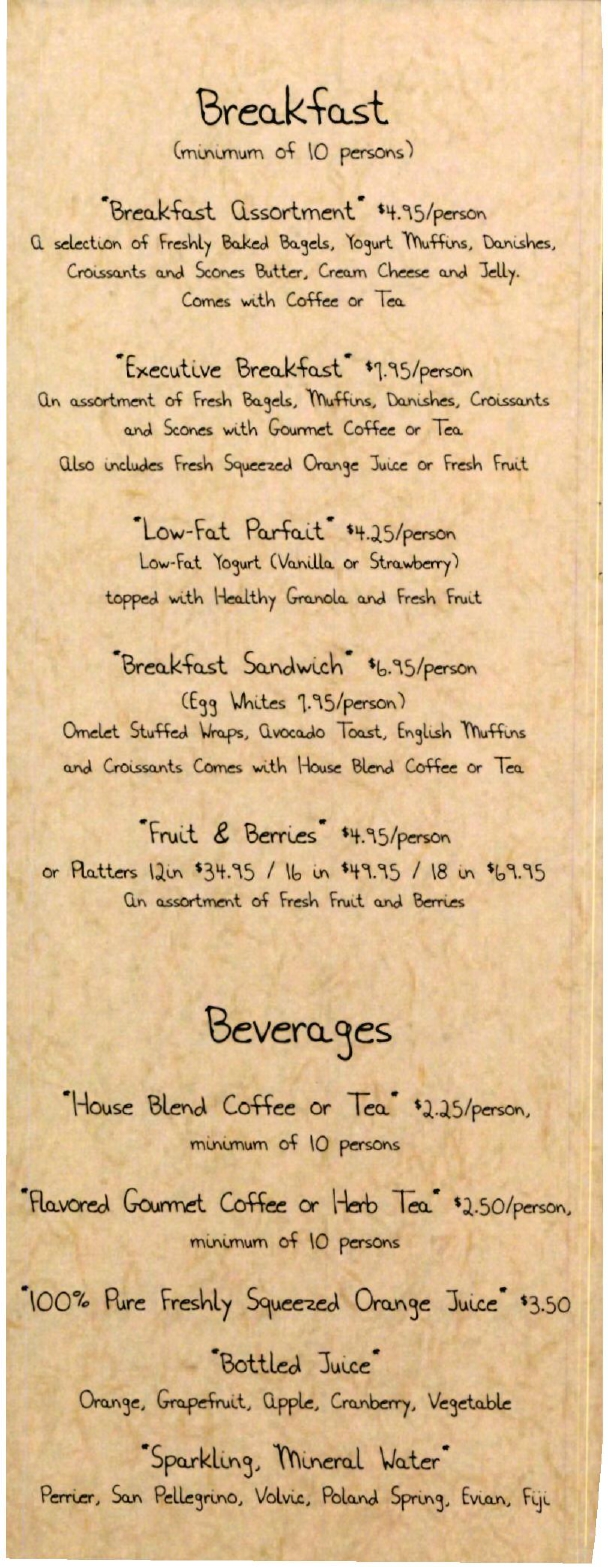 Breakfast
(minimum of 10 persons)
"Breakfast Assortment" $4.95/person
A selection of Freshly Baked Bagels, Yogurt Muffins, Danishes,
Croissants and Scones Butter, Cream Cheese and Jelly.
Comes with Coffee or Tea
"Executive Breakfast" $7.95/person
An assortment of Fresh Bagels, Muffins, Danishes, Croissants
and Scones with Gourmet Coffee or Tea
Also includes Fresh Squeezed Orange Juice or Fresh Fruit
"Low-Fat Parfait" $4.25/person
Low-Fat Yogurt (Vanilla or Strawberry)
topped with Healthy Granola and Fresh Fruit
"Breakfast Sandwich" $6.95/person
(Egg Whites 7.95/person)
Omelet Stuffed Wraps, Avocado Toast, English Muffins
and Croissants Comes with House Blend Coffee or Tea
"Fruit & Berries" $4.95/person
or Platters 12in $34.95 / 16 in $49.95 / 18 in $69.95
An assortment of Fresh Fruit and Berries
Beverages
"House Blend Coffee or Tea" $2.25/person,
minimum of 10 persons
"Flavored Gourmet Coffee or Herb Tea" $2.50/person,
minimum of 10 persons
"100% Pure Freshly Squeezed Orange Juice" $3.50
"Bottled Juice"
Orange, Grapefruit, Apple, Cranberry, Vegetable
"Sparkling, Mineral Water"
Perrier, San Pellegrino, Volvic, Poland Spring, Evian, Fiji